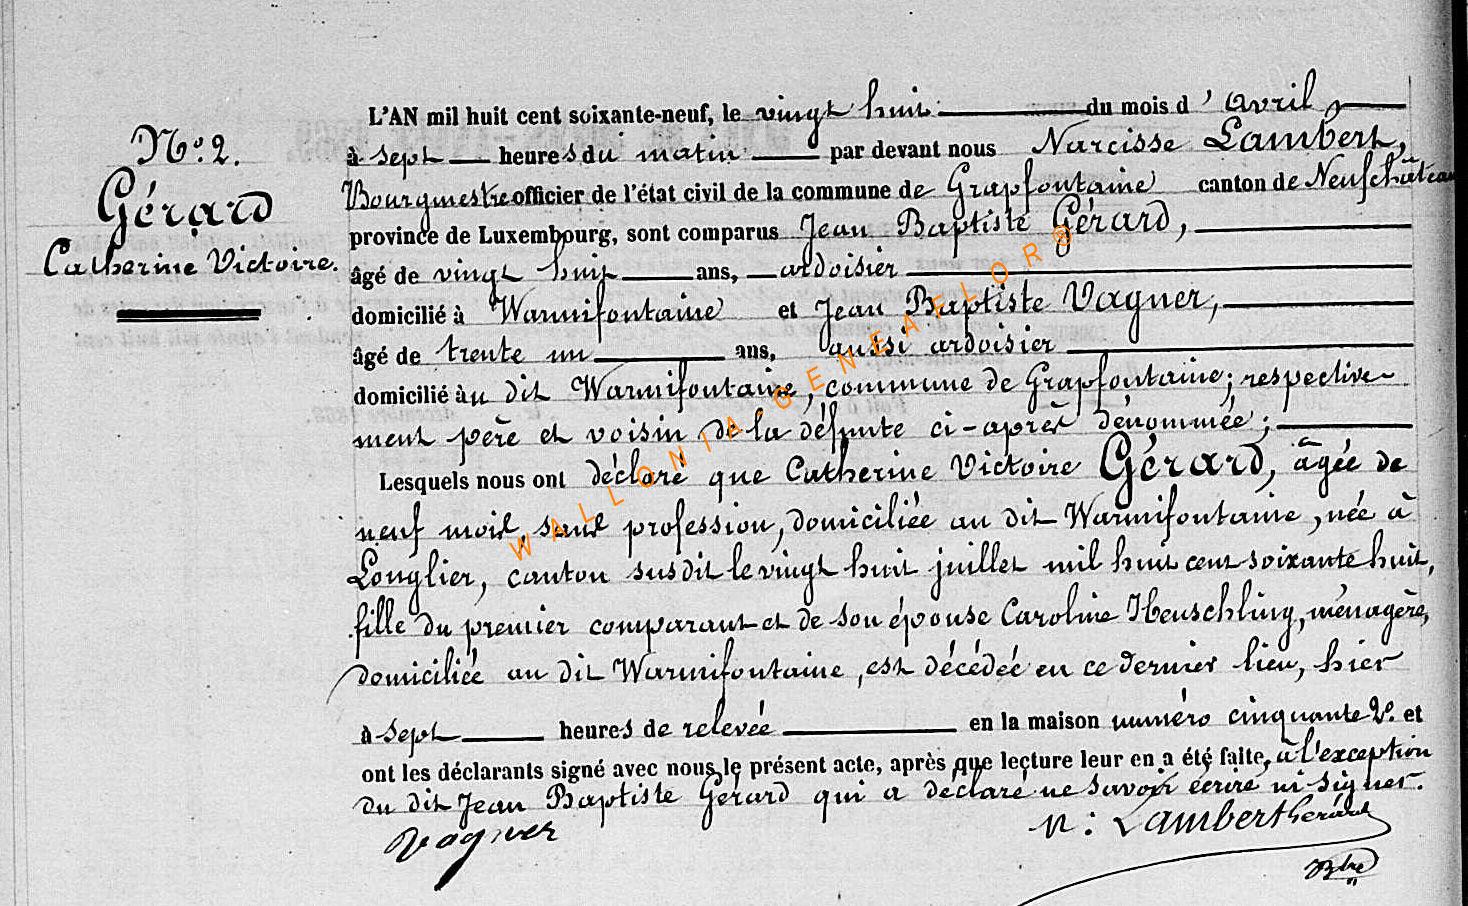 N°. 2.
Gérard
Catherine Victoire.
L'AN mil huit cent soixante-neuf, le vingt huit du mois d'Avril,
à sept heures du matin par devant nous Narcisse Lambert,
Bourgmestre officier de l'état civil de la commune de Grapfontaine canton de Neufchâteau
province de Luxembourg, sont comparus Jean Baptiste Gérard,
âgé de vingt huit ans, ardoisier
domicilié à Warmifontaine et Jean Baptiste Vagner,
âgé de trente un ans, aussi ardoisier
domicilié au dit Warmifontaine, commune de Grapfontaine; respective-
ment père et voisin de la défunte ci-après dénommée;
Lesquels nous ont déclaré que Catherine Victoire Gérard, âgée de
neuf mois, sans profession, domiciliée au dit Warmifontaine, née à
Longlier, canton susdit le vingt huit juillet mil huit cent soixante huit,
fille du premier comparant et de son épouse Caroline Heuschling, ménagère,
domiciliée au dit Warmifontaine, est décédée en ce dernier lieu, hier
à sept heures de relevée en la maison numéro cinquante 2°. et
ont les déclarants signé avec nous le présent acte, après que lecture leur en a été faite, à l'exception
du dit Jean Baptiste Gérard qui a déclaré ne savoir écrire ni signer.
Vagner
N: Lambert Gérard
Btre
WALLONIA GENEAFLOR®